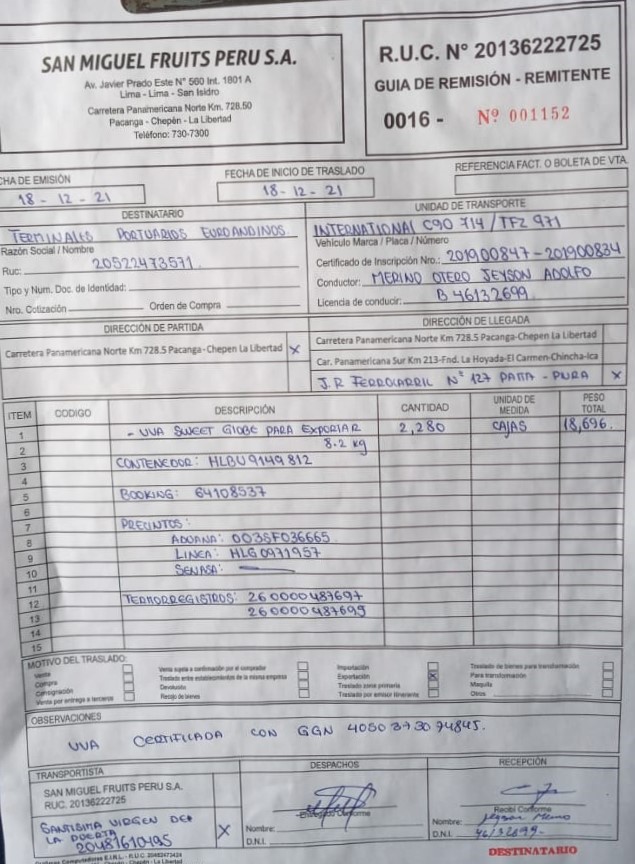 SAN MIGUEL FRUITS PERU S.A.
Av. Javier Prado Este N° 560 Int. 1801 A
Lima - Lima - San Isidro
Carretera Panamericana Norte Km. 728.50
Pacanga - Chepén - La Libertad
Teléfono: 730-7300
R.U.C. N° 20136222725
GUIA DE REMISIÓN - REMITENTE
0016 - Nº 001152
CHA DE EMISIÓN
18 - 12 - 21
FECHA DE INICIO DE TRASLADO
18 - 12 - 21
REFERENCIA FACT. O BOLETA DE VTA.
DESTINATARIO
TERMINALES PORTUARIOS EUROANDINOS
Razón Social / Nombre
Ruc: 20522473571
Tipo y Num. Doc. de Identidad:
Nro. Cotización Orden de Compra
UNIDAD DE TRANSPORTE
INTERNATIONAL C90 714 / TFZ 971
Vehículo Marca / Placa / Número
Certificado de Inscripción Nro.: 201900847 - 201900834
Conductor: MERINO OTERO JEYSON ADOLFO
Licencia de conducir: B 46132699
DIRECCIÓN DE PARTIDA
Carretera Panamericana Norte Km 728.5 Pacanga-Chepen La Libertad X
DIRECCIÓN DE LLEGADA
Carretera Panamericana Norte Km 728.5 Pacanga-Chepen La Libertad
Car. Panamericana Sur Km 213-Fnd. La Hoyada-El Carmen-Chincha-Ica
J.R FERROCARRIL N° 127 PAITA - PIURA X
ITEM CODIGO DESCRIPCIÓN CANTIDAD UNIDAD DE MEDIDA PESO TOTAL
1 - UVA SWEET GLOBE PARA EXPORTAR 2,280 CAJAS 18,696.
2 8.2 kg
3 CONTENEDOR: HLBU9149812
4
5 BOOKING: 64108537
6
7 PRECINTOS:
8 ADUANA: 003SF036665
9 LINEA: HLG0971957
10 SENASA:
11
12 TERMORREGISTROS: 260000487697
13 260000487695
14
15
MOTIVO DEL TRASLADO:
Venta
Compra
Consignación
Venta por entrega a terceros
Venta sujeta a confirmación por el comprador
Traslado entre establecimientos de la misma empresa
Devolución
Recojo de bienes
Importación
Exportación X
Traslado zona primaria
Traslado por emisor itinerante
Traslado de bienes para transformación
Para transformación
Maquila
Otros
OBSERVACIONES
UVA CERTIFICADA CON GGN 4050373074845.
TRANSPORTISTA
SAN MIGUEL FRUITS PERU S.A.
RUC. 20136222725
SANTISIMA VIRGEN DE LA PUERTA X
20481610495
DESPACHOS
Entregado Conforme
Nombre:
D.N.I.
RECEPCIÓN
Recibi Conforme
Nombre: Jeyson Merino
D.N.I. 46132699
DESTINATARIO